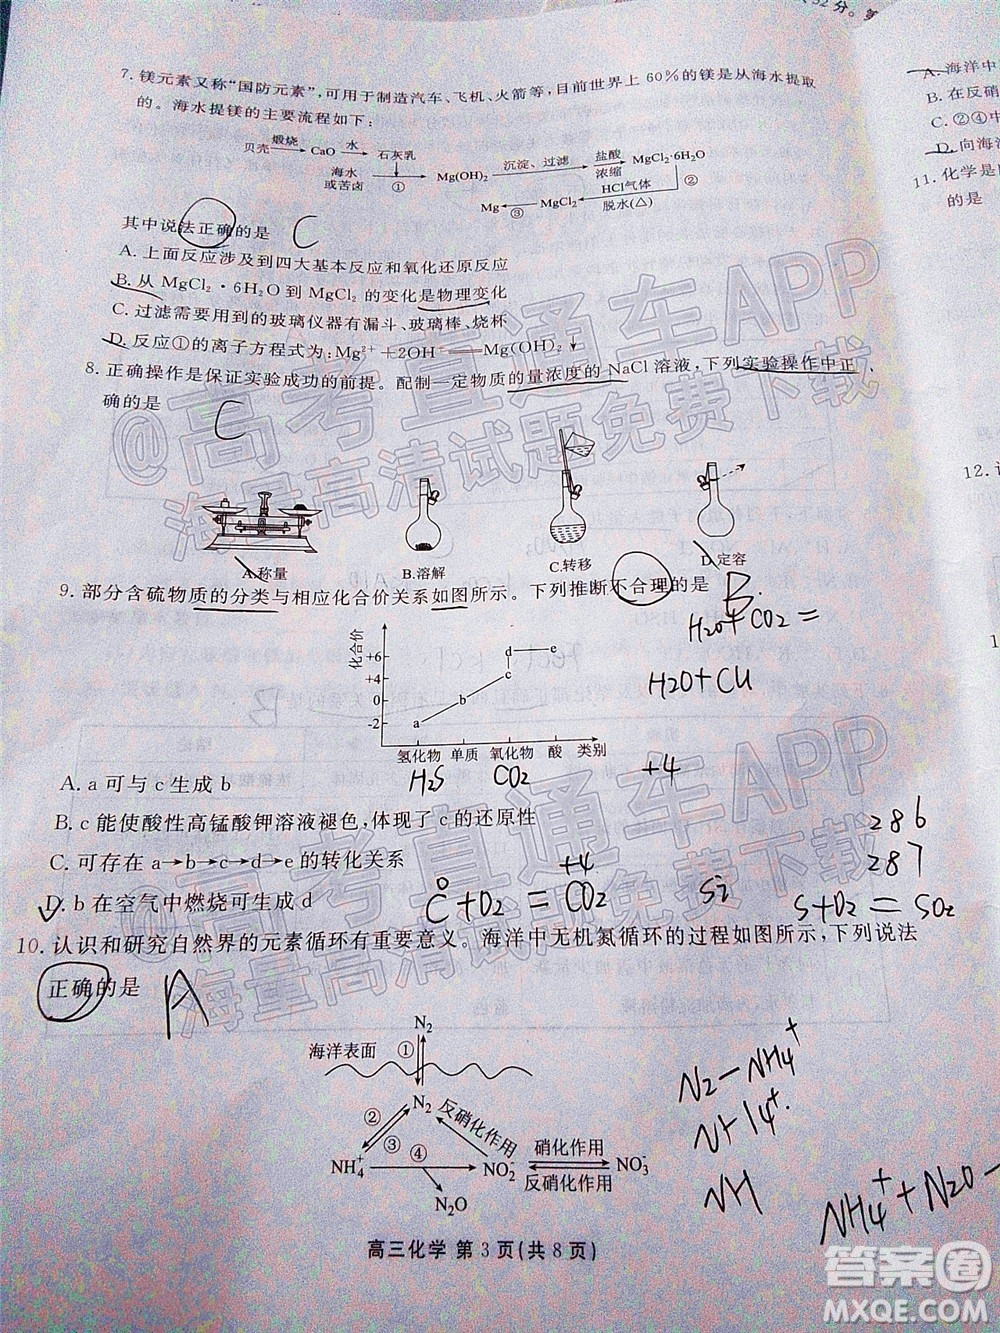 52分。第
7. 镁元素又称“国防元素”,可用于制造汽车、飞机、火箭等,目前世界上 60%的镁是从海水提取
的。海水提镁的主要流程如下:
贝壳 煅烧 CaO 水 石灰乳
海水或苦卤 ① Mg(OH)2 沉淀、过滤 盐酸 浓缩 MgCl2·6H2O
Mg ③ MgCl2 HCl气体 脱水(△) ②
其中说法正确的是 C
A. 上面反应涉及到四大基本反应和氧化还原反应
B. 从 MgCl2·6H2O 到 MgCl2 的变化是物理变化
C. 过滤需要用到的玻璃仪器有漏斗、玻璃棒、烧杯
D. 反应①的离子方程式为:Mg2+ +2OH-══Mg(OH)2↓
8. 正确操作是保证实验成功的前提。配制一定物质的量浓度的 NaCl 溶液,下列实验操作中正
确的是 C
A.称量 B.溶解 C.转移 D.定容
9. 部分含硫物质的分类与相应化合价关系如图所示。下列推断不合理的是 B
H2O+CO2=
化合价
+6
+4
0
-2
a b c d e
氢化物 单质 氧化物 酸 类别
H2S CO2 +4
A. a 可与 c 生成 b
B. c 能使酸性高锰酸钾溶液褪色,体现了 c 的还原性
286
C. 可存在 a→b→c→d→e 的转化关系
287
D. b 在空气中燃烧可生成 d
C+O2=CO2 0 +4 Si S+O2=SO2
10. 认识和研究自然界的元素循环有重要意义。海洋中无机氮循环的过程如图所示,下列说法
正确的是 A
N2
海洋表面 ①
N2
② 反硝化作用
③ ④ 硝化作用
NH4+ NO2- NO3-
反硝化作用
N2O
N2-NH4+
NH4+.
NH
NH4+ + N2O
高三化学 第 3 页(共 8 页)
A. 海洋中
B. 在反硝
C. ②④中
D. 向海洋
11. 化学是
的是
12.
@高考直通车APP
海量高清试题免费下载
@高考直通车APP
海量高清试题免费下载
答案圈
MXQE.COM